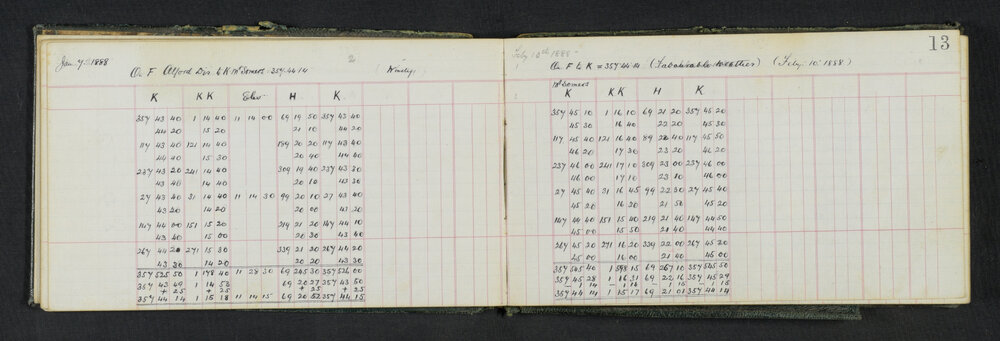 Jan 7. 1888
2
On F Alford Dir. to K Mt Somers = 357.44.14 (Windy.)
K KK Elev H K
357 43 40 1 14 40 11 14 00 69 19 50 357 43 40
44 20 15 20 21 10 44 20
117 43 40 121 14 40 189 20 20 117 43 40
44 40 15 30 20 40 44 00
237 43 20 241 14 40 309 19 40 237 43 30
43 40 14 40 20 10 43 30
27 43 40 31 14 40 11 14 30 99 20 10 27 43 40
43 20 14 20 20 00 43 20
147 44 00 151 15 20 219 21 20 147 44 10
43 40 15 00 20 30 43 40
267 44 20 271 15 30 339 21 20 267 44 20
43 30 14 20 20 20 43 30
357 525 50 1 178 40 11 28 30 69 245 30 357 526 00
357 43 49 1 14 53 69 20 27 357 43 50
+ 25 + 25 + 25 + 25
357 44 14 1 15 18 11 14 15 69 20 52 357 44 15
13
Feby 10th 1888
On F to K = 357.44.14 (Favourable weather) (Feby. 10. 1888)
Mt Somers
K KK H K
357 45 10 1 16 10 69 21 20 357 45 20
45 30 16 40 22 20 45 30
117 45 40 121 16 40 189 22 40 117 45 50
46 20 17 30 23 20 46 20
237 46 00 241 17 10 309 23 00 237 46 00
46 00 17 10 23 10 46 00
27 45 40 31 16 45 99 22 30 27 45 40
45 20 16 20 21 50 45 20
147 44 40 151 15 40 219 21 40 147 44 50
45 00 15 50 21 40 45 00
267 45 20 271 16 20 339 22 00 267 45 20
45 00 16 00 21 40 45 00
357 545 40 1 198 15 69 267 10 357 545 50
357 45 28 1 16 31 69 22 16 357 45 29
- 1 14 - 1 14 - 1 15 - 1 15
357 44 14 1 15 17 69 21 01 357 44 14